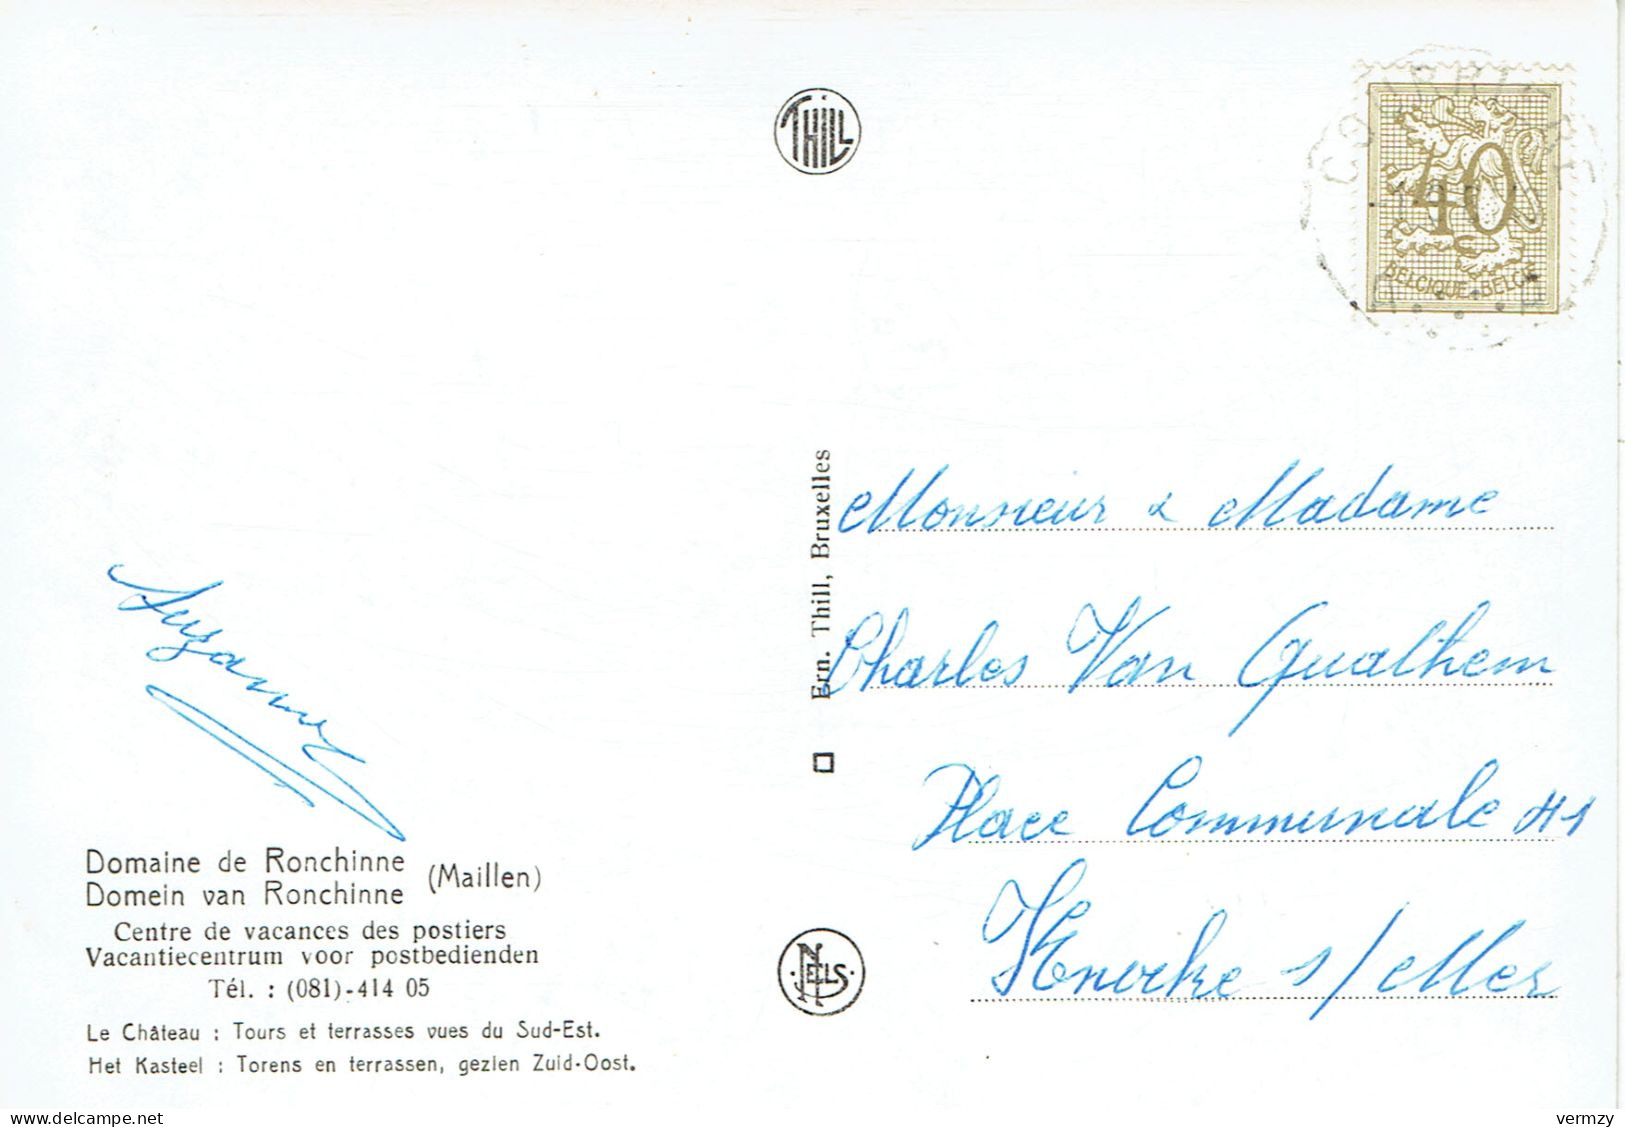 THILL
40
BELGIQUE-BELGIË
Ern. Thill, Bruxelles
Monsieur & Madame
Charles Van Qualthem
Place Communale 41
Knocke s/Mer
Suzanne
Domaine de Ronchinne
Domein van Ronchinne
(Maillen)
Centre de vacances des postiers
Vacantiecentrum voor postbedienden
Tél. : (081)-414 05
Le Château : Tours et terrasses vues du Sud-Est.
Het Kasteel : Torens en terrassen, gezien Zuid-Oost.
NELS
delcampe.net
vermzy